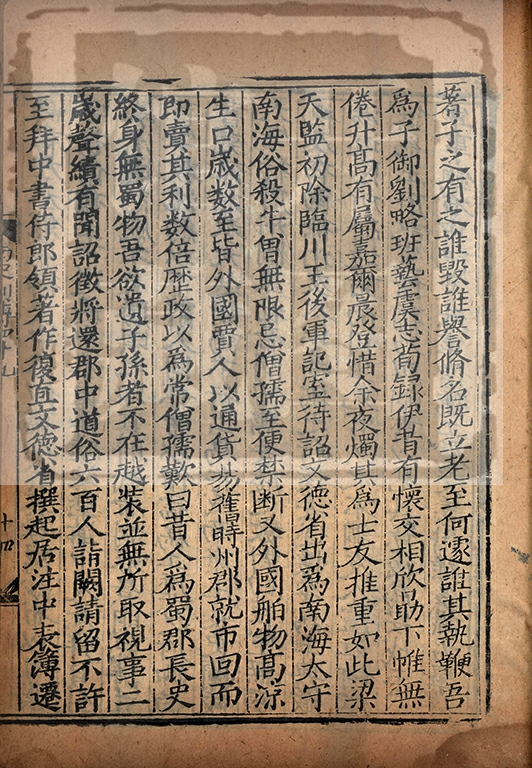 著子之有之誰毀誰譽脩名既立老至何遽誰其執鞭吾
爲子御劉略班藝虞志荀録伊昔有懷交相欣勗下帷無
倦升髙有屬嘉爾晨登惜余夜燭其爲士友推重如此梁
天監初除臨川王後軍記室待詔文德省出爲南海太守
南海俗殺牛曽無限忌僧孺至便禁断又外國舶物髙涼
生口歳数至皆外國賈人以通貨易舊時州郡就市回而
即賣其利数倍歴政以爲常僧孺歎曰昔人爲蜀郡長史
終身無蜀物吾欲遺子孫者不在越裝並無所取視事二
歳聲績有聞詔徵將還郡中道俗六百人詣闕請留不許
至拜中書侍郎領著作復直文德省撰起居注中表簿遷
十四